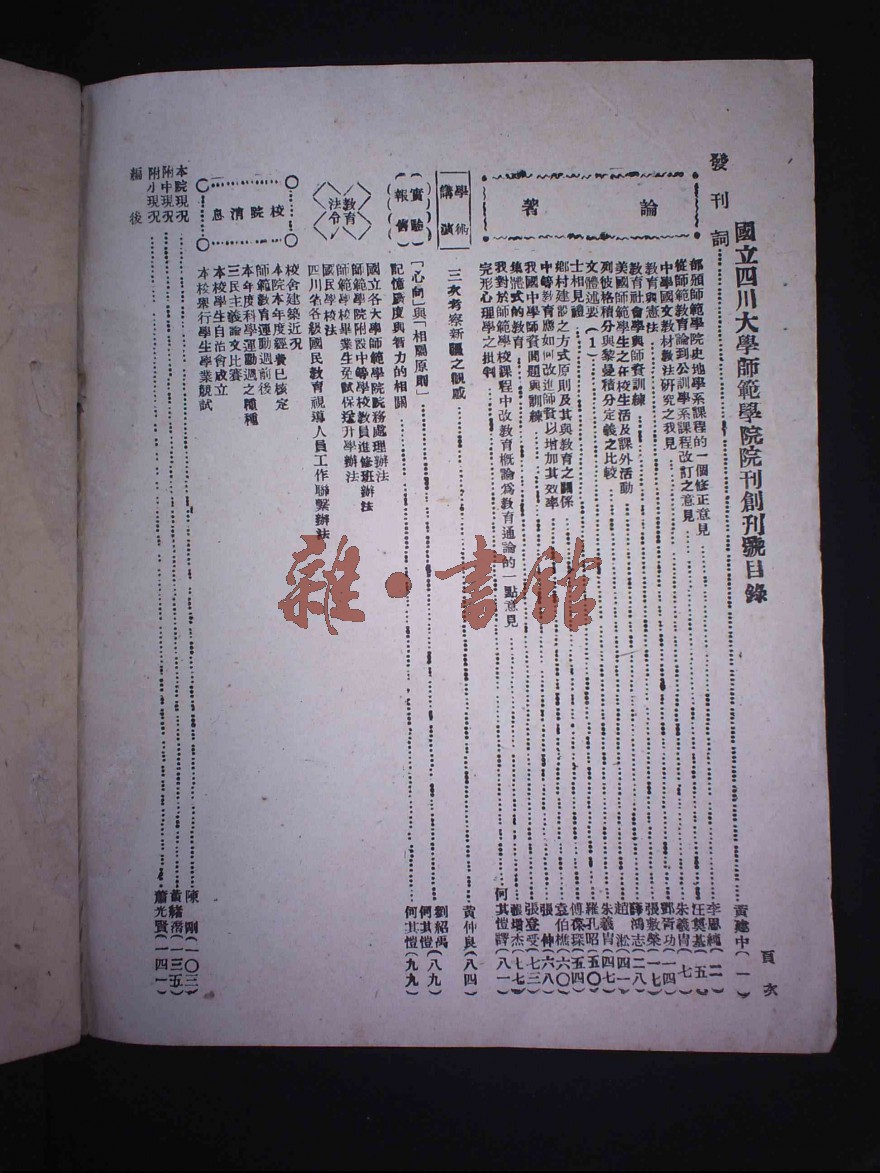 國立四川大學師範學院院刊創刊號目錄
頁次
發刊詞……黃建中(一)
論著
部頒師範學院史地學系課程的一個修正意見……李思純(二)
從師範教育論到公訓學系課程改訂之意見……汪奠基(五)
中學國文教材教法研究之我見……朱義胄(七)
教育與憲法……鄧胥功(一四)
教育社會學與師資訓練……張敷榮(一七)
美國師範學生之在校生活及課外活動……薛鴻志(二八)
列彼格積分與黎曼積分定義之比較……趙淞(四一)
文體述要(1)……朱義胄(四七)
士相見禮……羅孔昭(五〇)
鄉村建設之方式原則及其與教育之關係……傅葆琛(五四)
中等教育應如何改進師資以增加其效率……袁伯樵(六〇)
我國中學師資問題與訓練……張伸(六八)
集體式的教育……張登受(七三)
我對於師範學校課程中改教育概論爲教育通論的一點意見……增杰(七七)
完形心理學之批判……何其愷譯(八一)
學術講演
三次考察新疆之觀感……黃仲良(八四)
實驗報告
「心向」與「相屬原則」……劉紹禹 何其愷(八九)
記憶廣度與智力的相關……何其愷(九九)
教育法令
國立各大學師範學院院務處理辦法
師範學院附設中等學校教員進修班辦法
師範學校畢業生免試保送升學辦法
國民學校法
四川省各級國民教育視導人員工作聯繫辦法
校院消息
校舍建築近況
本院本年度經費已核定
師範教育運動週前後
本年度科學運動週之種種
三民主義論文比賽
本校學生自治會成立
本校舉行學生學業競試
本院現況……陳剛(一〇三)
附中現況……黃緒(一三五)
附小現況……蕭光賢(一四一)
編後
雜·書館